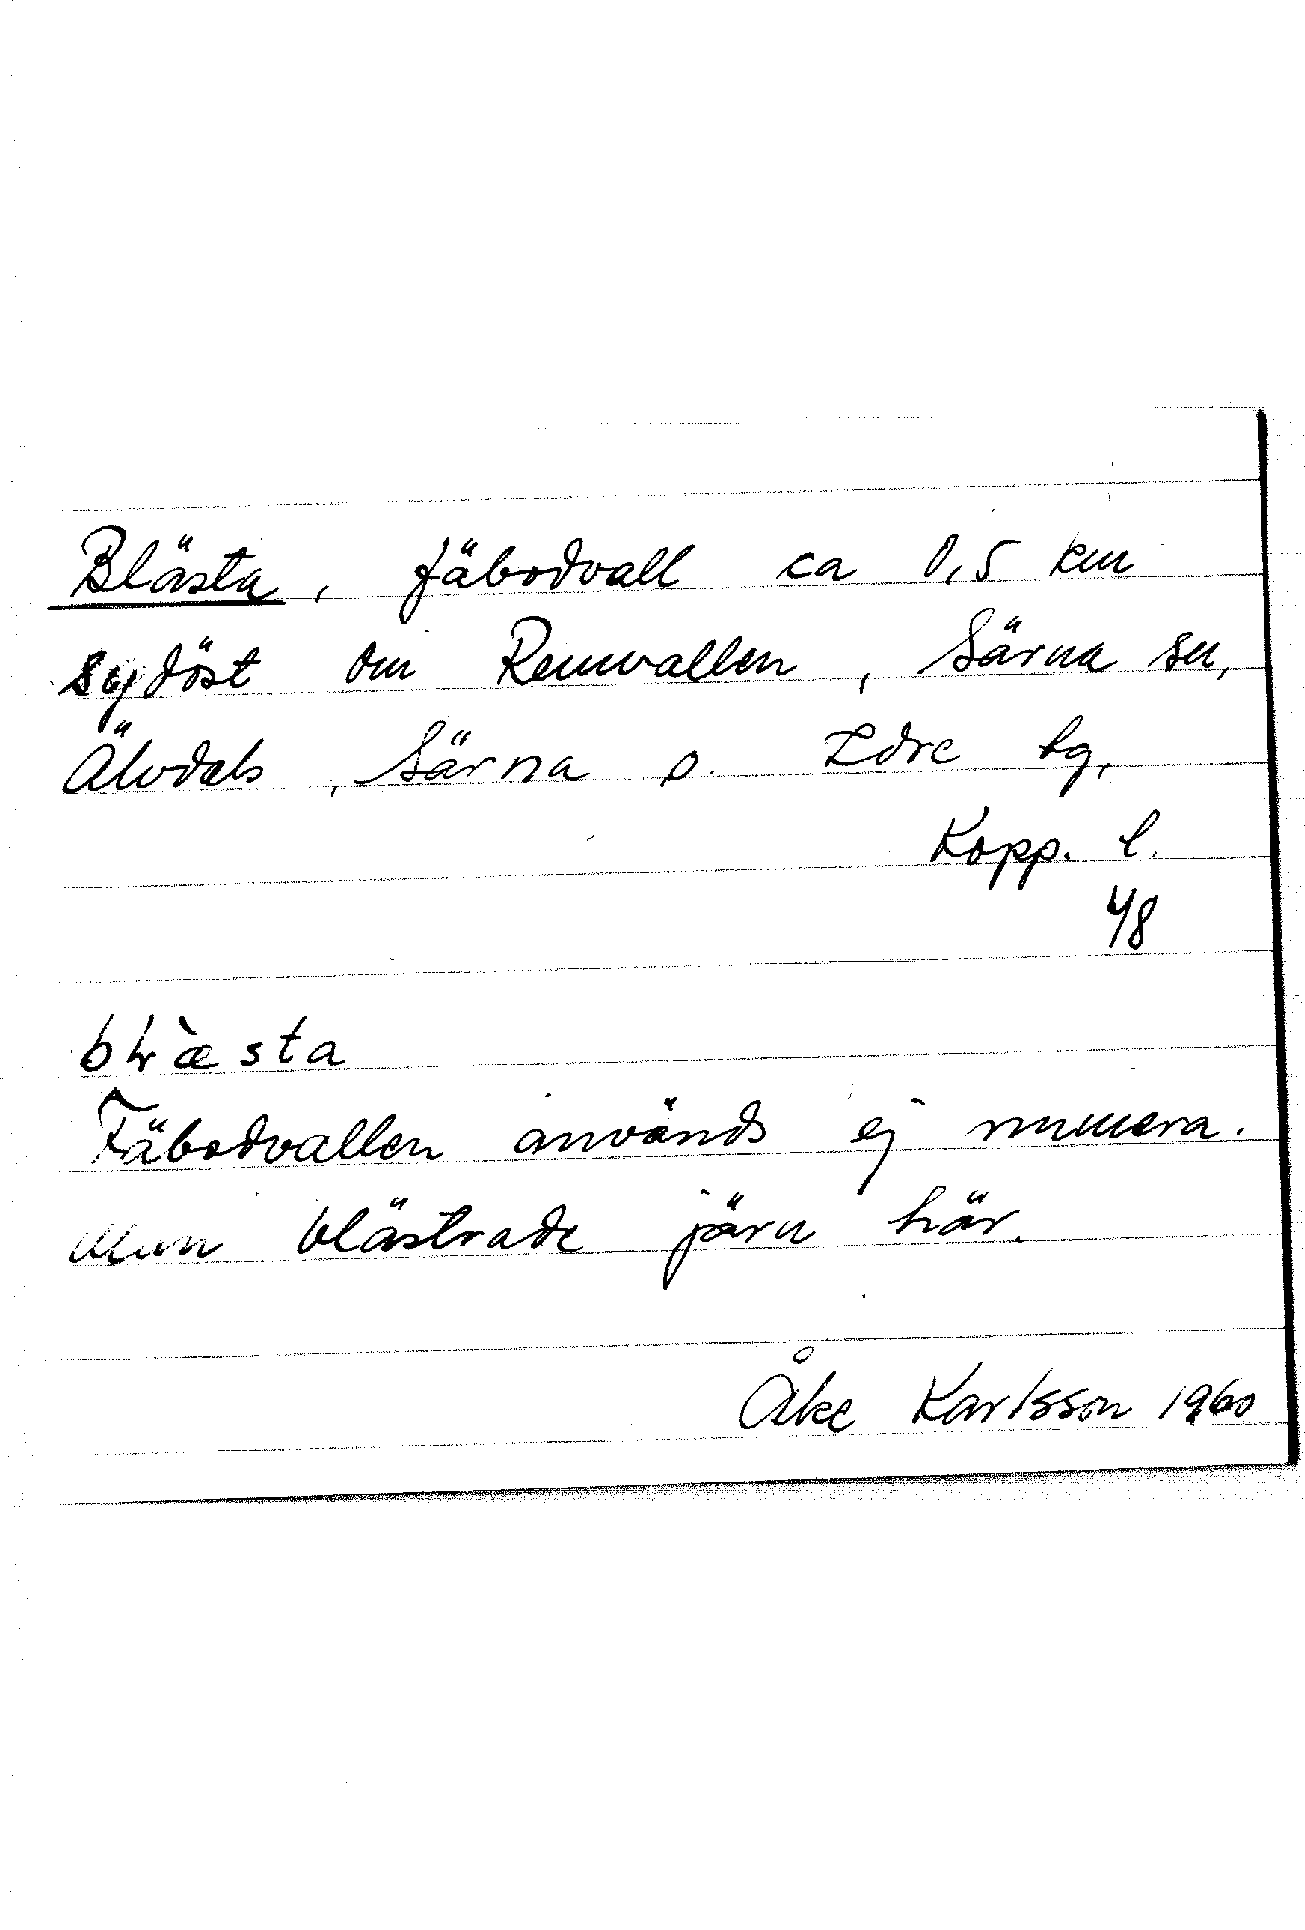 Blästa, fäbodvall ca 0,5 km
sydöst om Remvallen, Särna sn,
Älvdals, Särna o. Idre tg,
Kopp. l.
48
bɫæ̀sta
Fäbodvallen används ej numera.
Man blästrade järn här.
Åke Karlsson 1960